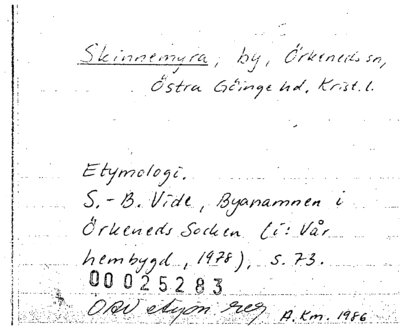 Skinnemyra, by, Örkeneds sn,
Östra Göinge hd, Krist. l.
Etymologi.
S.-B. Vide, Byanamnen i
Örkeneds Socken (i: Vår
hembygd, 1978), s. 73.
00025283
OAU etym reg
A. Km. 1986